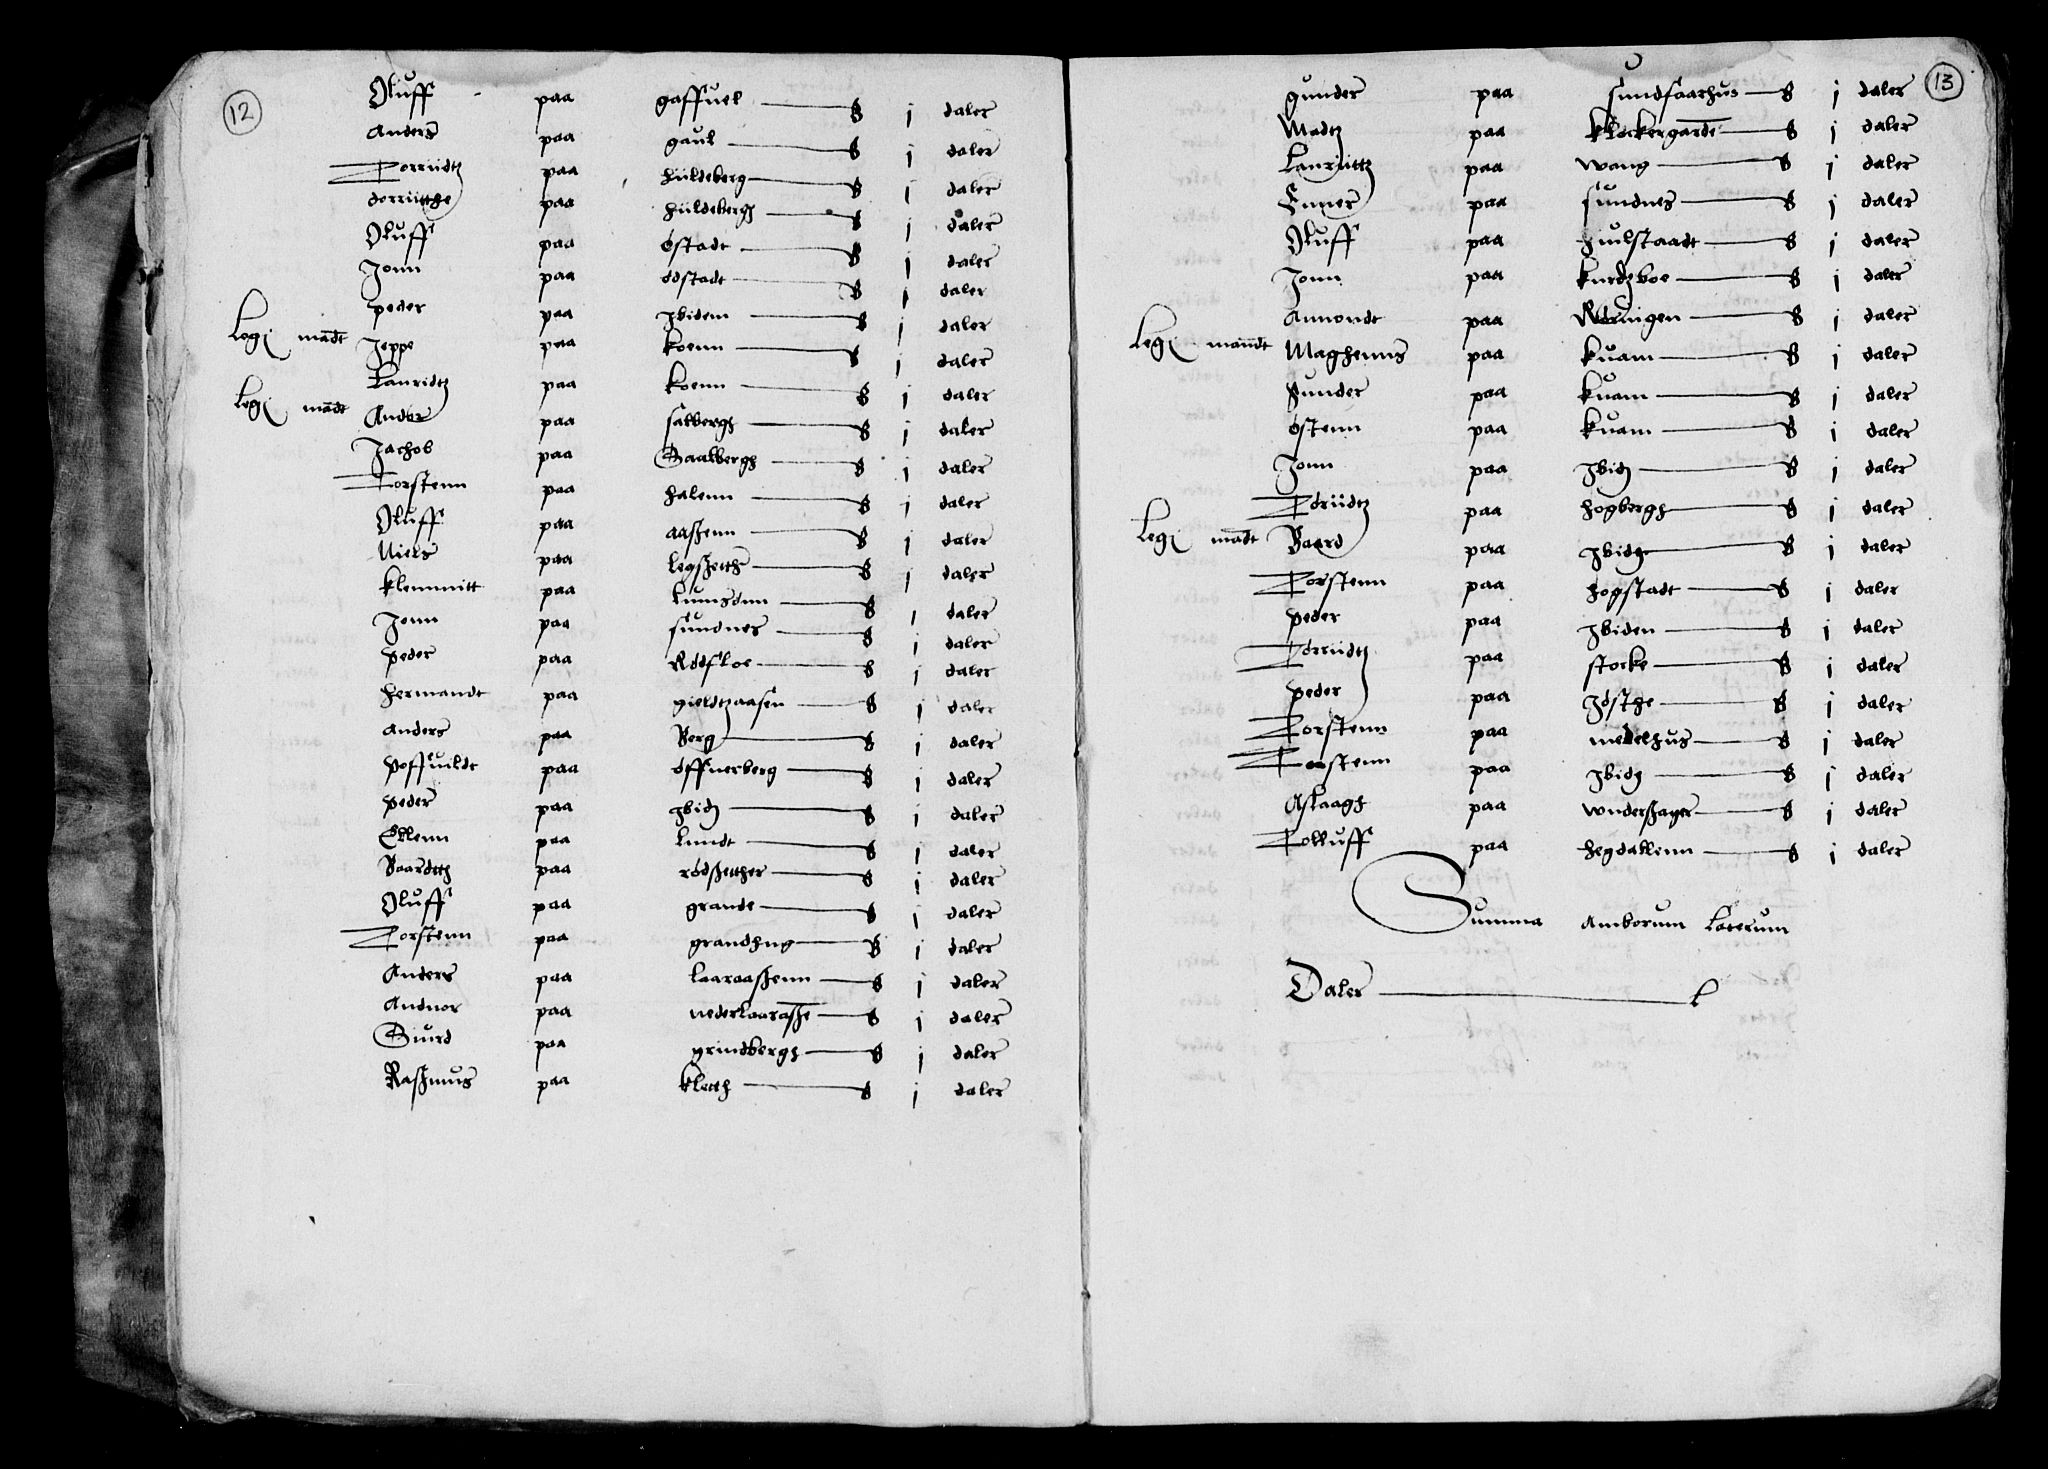 12
Oluff paa gaffuel — s j daler
Anders paa gaul — s j daler
Torridtz paa hüldeberg — s j daler
dorritthe paa hüldebergs — s j daler
Oluff paa östadt — s j daler
Jonn paa ödstadt — s j daler
peder paa Jbidem — s j daler
Legi mādt Jeppe paa koenn — s j daler
Lauridtz paa koenn — s j daler
Legi mādt Ander paa salbergs — s j daler
Jachob paa Saalbergs — s j daler
Torstenn paa halenn — s j daler
Oluff paa aaszenn — s j daler
Niels paa legszetth — s j daler
Klemmitt paa — s j daler
Jonn paa sundnes — s j daler
peder paa Rödfloe — s j daler
hermandt paa gieldtzaasen — s j daler
Anders paa Berg — s j daler
poffuildt paa öffuerberg — s j daler
peder paa Jbidz — s j daler
Ellenn paa Lundt — s j daler
Baardtth paa rödszetther — s j daler
Oluff paa grande — s j daler
Torstenn paa grandhug — s j daler
Anders paa laaraaszenn — s j daler
Anduor paa nederlaarasze — s j daler
Siurd paa grindbergs — s j daler
Raszmus paa kletth — s j daler
13
gunder paa sundsaarhus — s j daler
Madtz paa klockergarde — s j daler
Laurittz paa wang — s j daler
Enner paa sundnes — s j daler
Oluff paa hulstaadt — s j daler
Jonn paa kurdzboe — s j daler
Amondt paa Rörningen — s j daler
Legi mandt Maghenns paa kuam — s j daler
gunder paa kuam — s j daler
östenn paa kuam — s j daler
Jonn paa Jbidz — s j daler
Törridtz paa hogbergs — s j daler
Legi mādt Baard paa Jbidz — s j daler
Torstenn paa hogstadt — s j daler
peder paa Jbiden — s j daler
Törridtz paa stocke — s j daler
peder paa Jösthe — s j daler
Torstenn paa medelhus — s j daler
Torstenn paa Jbidz — s j daler
Aslaags paa wnderszager — s j daler
Tolluff paa hegdallenn — s j daler
Summa Amborum Laterum
Daler — L